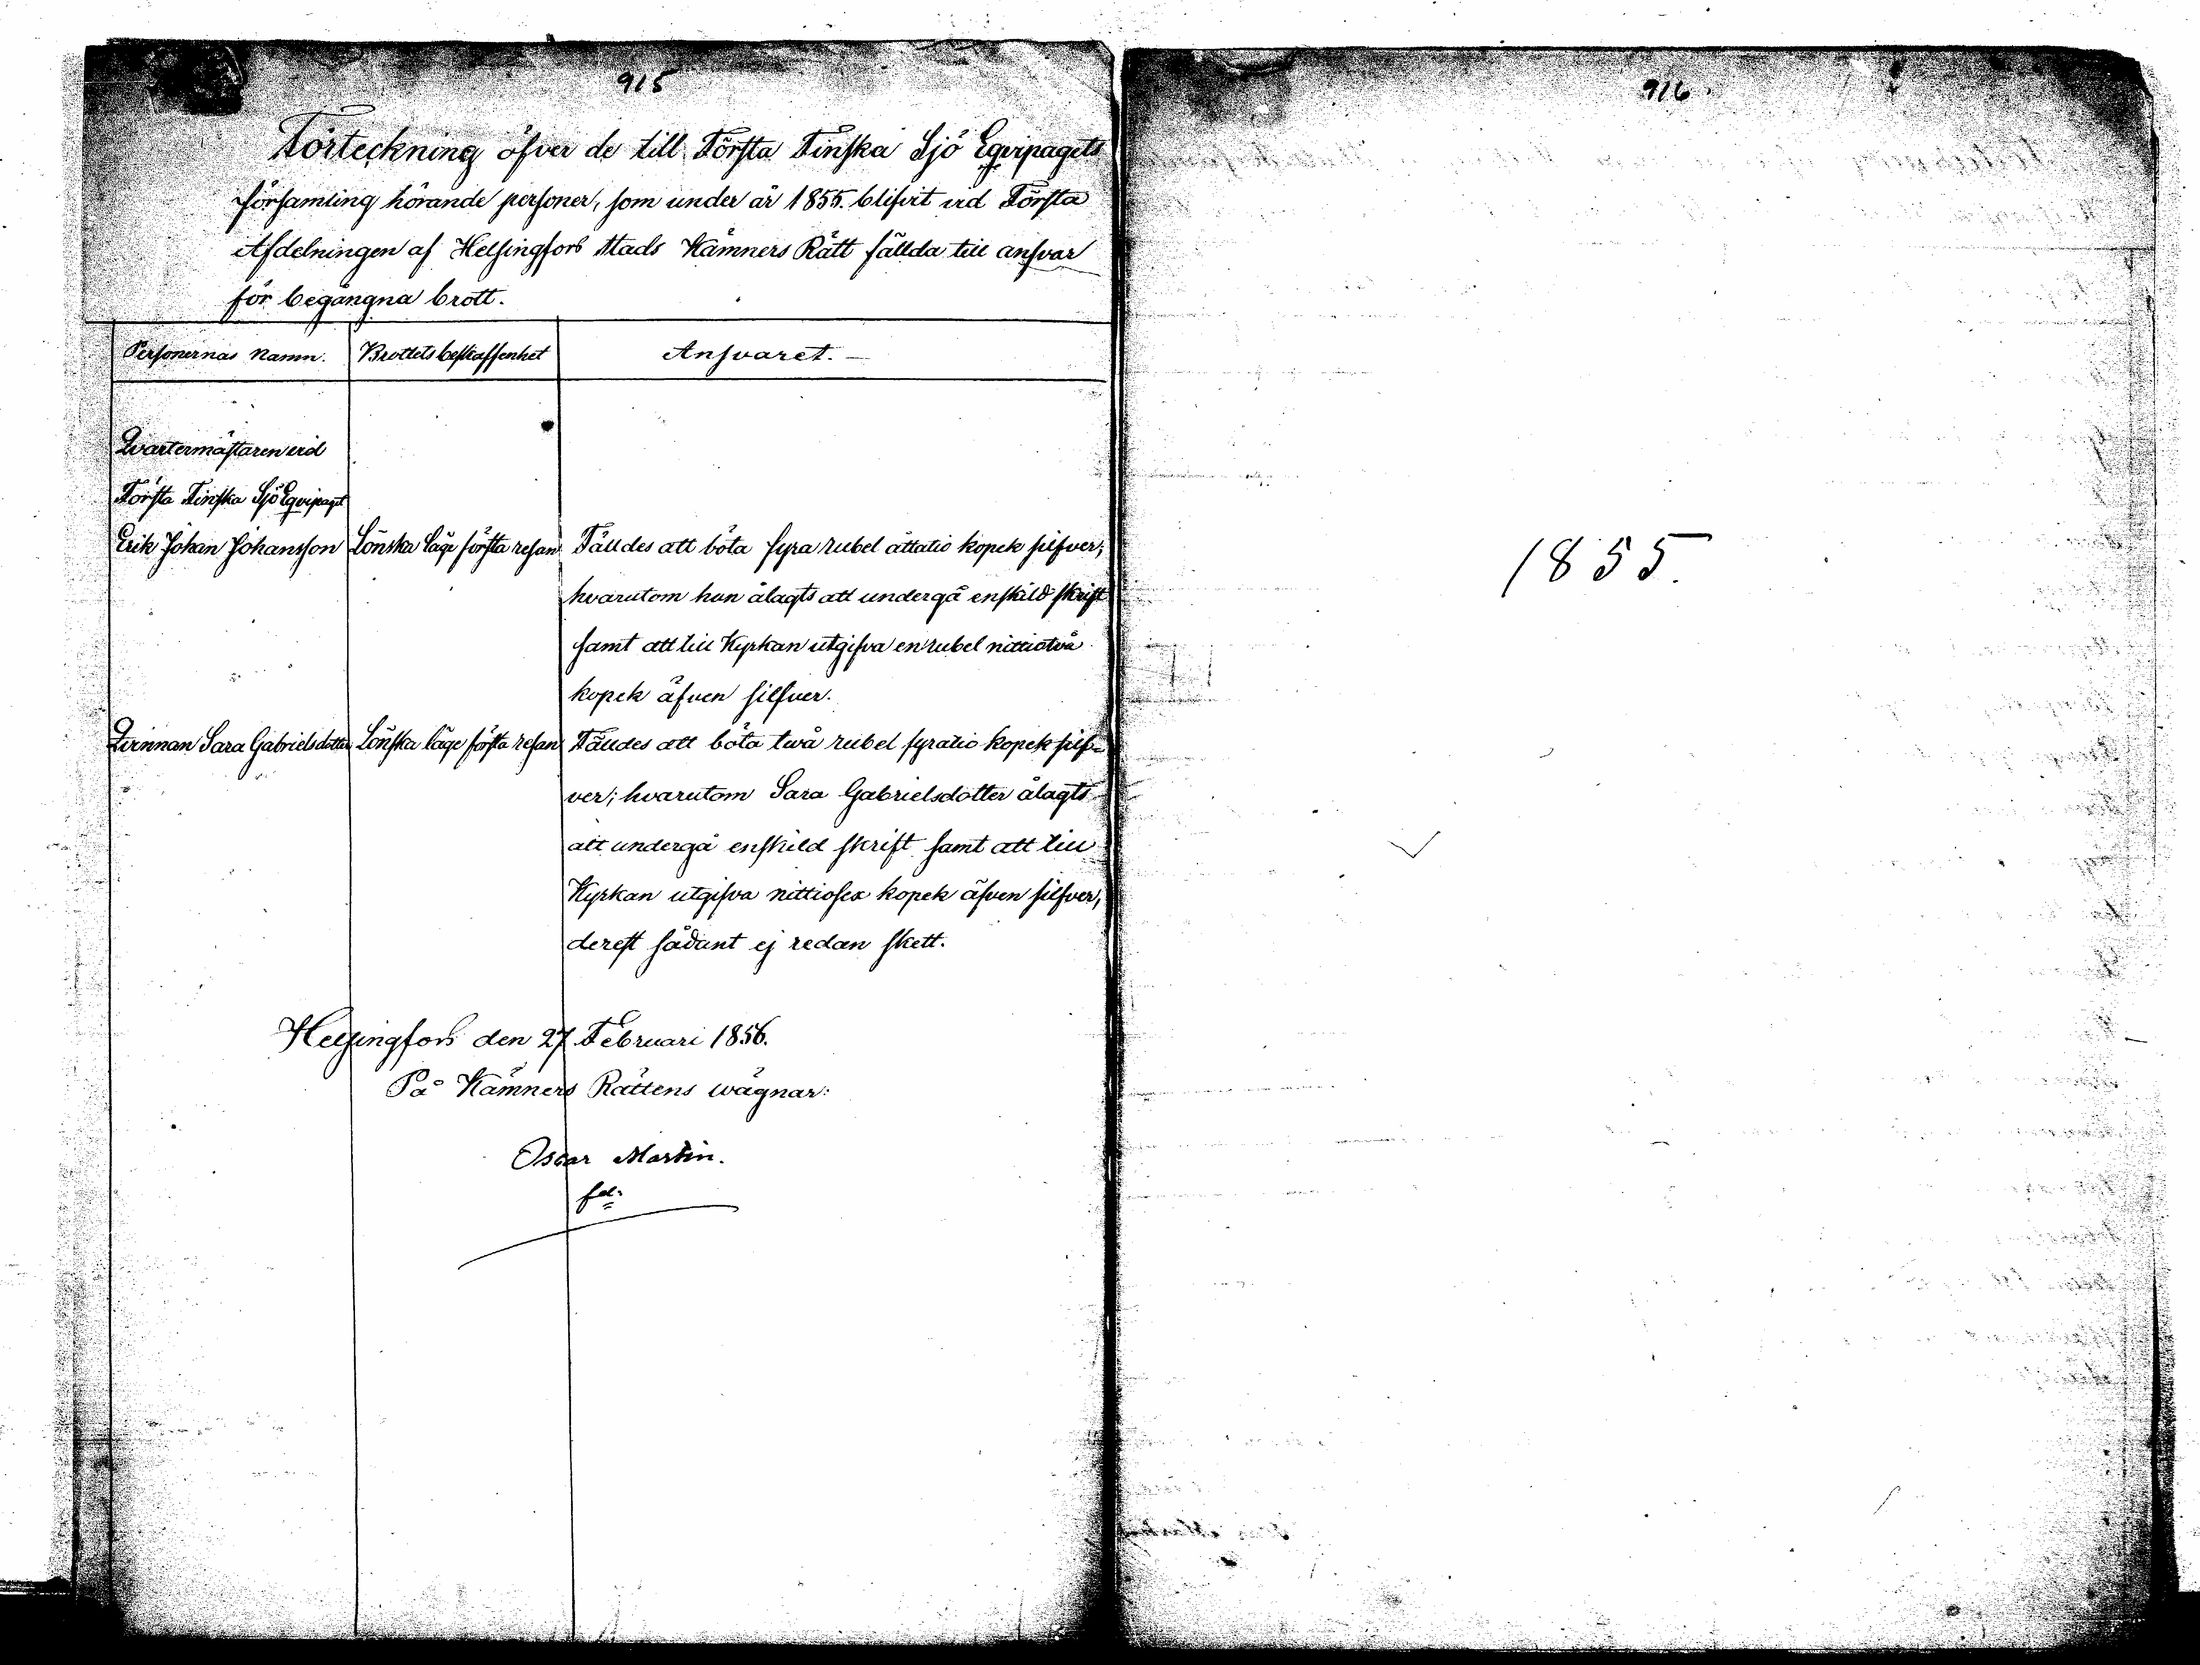 915
Förteckning öfver de till Första Finska Sjö Eqvipagets
församling hörande personer, som under år 1855. blifvit vid Första
Afdelningen af Helsingfors Stads Kämners Rätt fällda till ansvar
för begångna brott.
Personernas Namn. Brottets beskaffenhet Ansvaret. —
Qvartermästaren vid
Första Finska Sjö Eqvipaget
Erik Johan Johansson Lönska läge första resan Fälldes att böta fyra rubel åttatio kopek silfver;
hvarutom han ålagts att undergå enskild skrift
samt att till Kyrkan utgifva en rubel nittiotvå
kopek äfven silfver.
Qvinnan Sara Gabrielsdotter Lönska läge första resan Fälldes att böta två rubel fyratio kopek silf-
ver; hvarutom Sara Gabrielsdotter ålagts
att undergå enskild skrift samt att till
Kyrkan utgifva nittiosex kopek äfven silfver,
derest sådant ej redan skett.
Helsingfors den 27 Februari 1856.
På Kämners Rättens wägnar:
Oscar Martin.
916
1855.